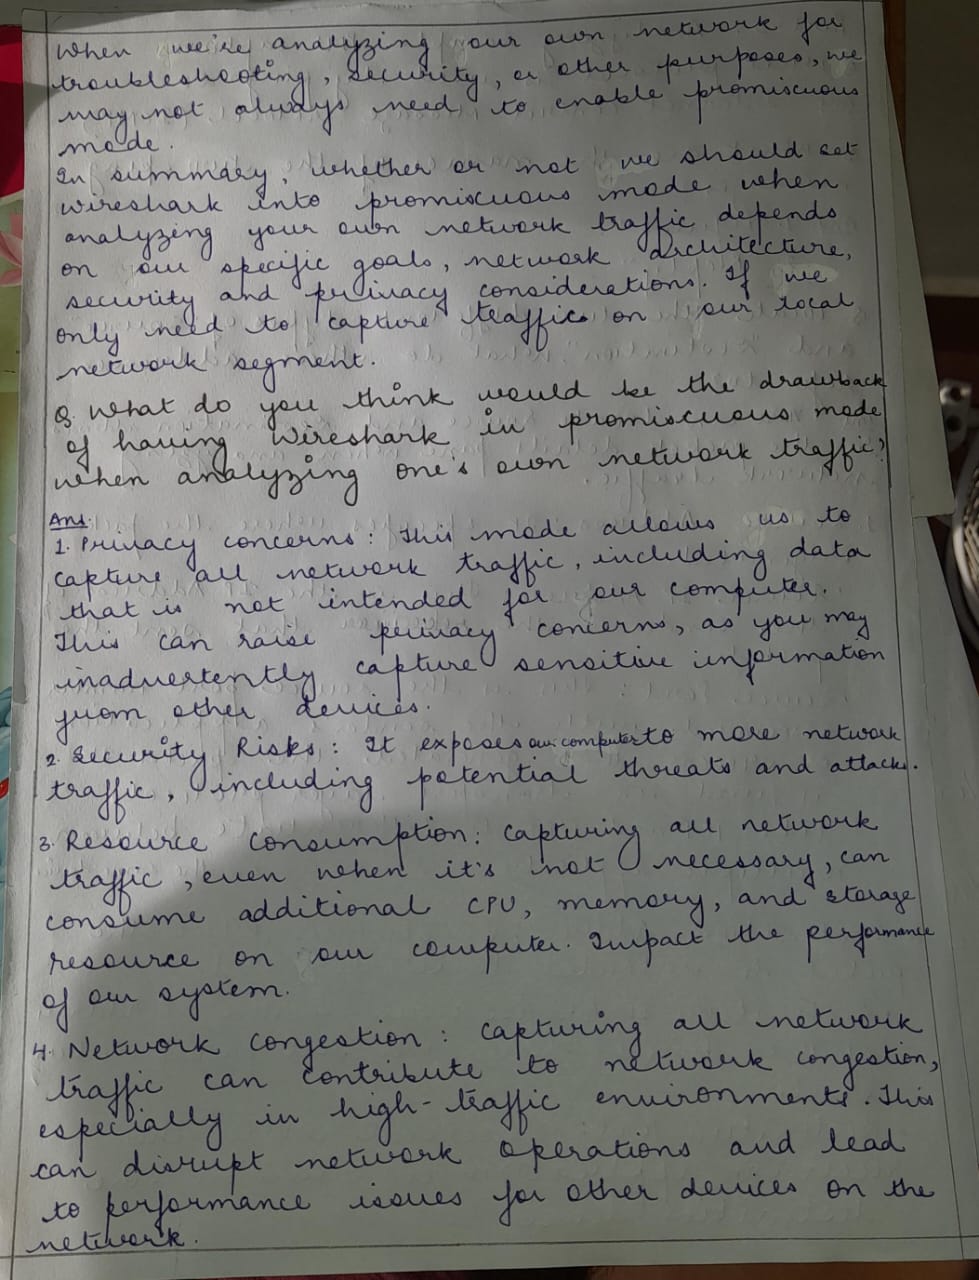 When we're analyzing our own network for
troubleshooting, security, or other purposes, we
may not always need to enable promiscuous
mode.
In summary, whether or not we should set
wireshark into promiscuous mode when
analyzing your own network traffic depends
on our specific goals, network architecture,
security and privacy considerations. If we
only need to capture traffic on our local
network segment.
Q. What do you think would be the drawback
of having Wireshark in promiscuous mode
when analyzing one's own network traffic?
Ans.
1. Privacy concerns: This mode allows us to
capture all network traffic, including data
that is not intended for our computer.
This can raise privacy concerns, as you may
inadvertently capture sensitive information
from other devices.
2. Security Risks: It exposes our computer to more network
traffic, including potential threats and attacks.
3. Resource Consumption: Capturing all network
traffic, even when it's not necessary, can
consume additional CPU, memory, and storage
resource on our computer. Impact the performance
of our system.
4. Network Congestion: Capturing all network
traffic can contribute to network congestion,
especially in high-traffic environments. This
can disrupt network operations and lead
to performance issues for other devices on the
network.